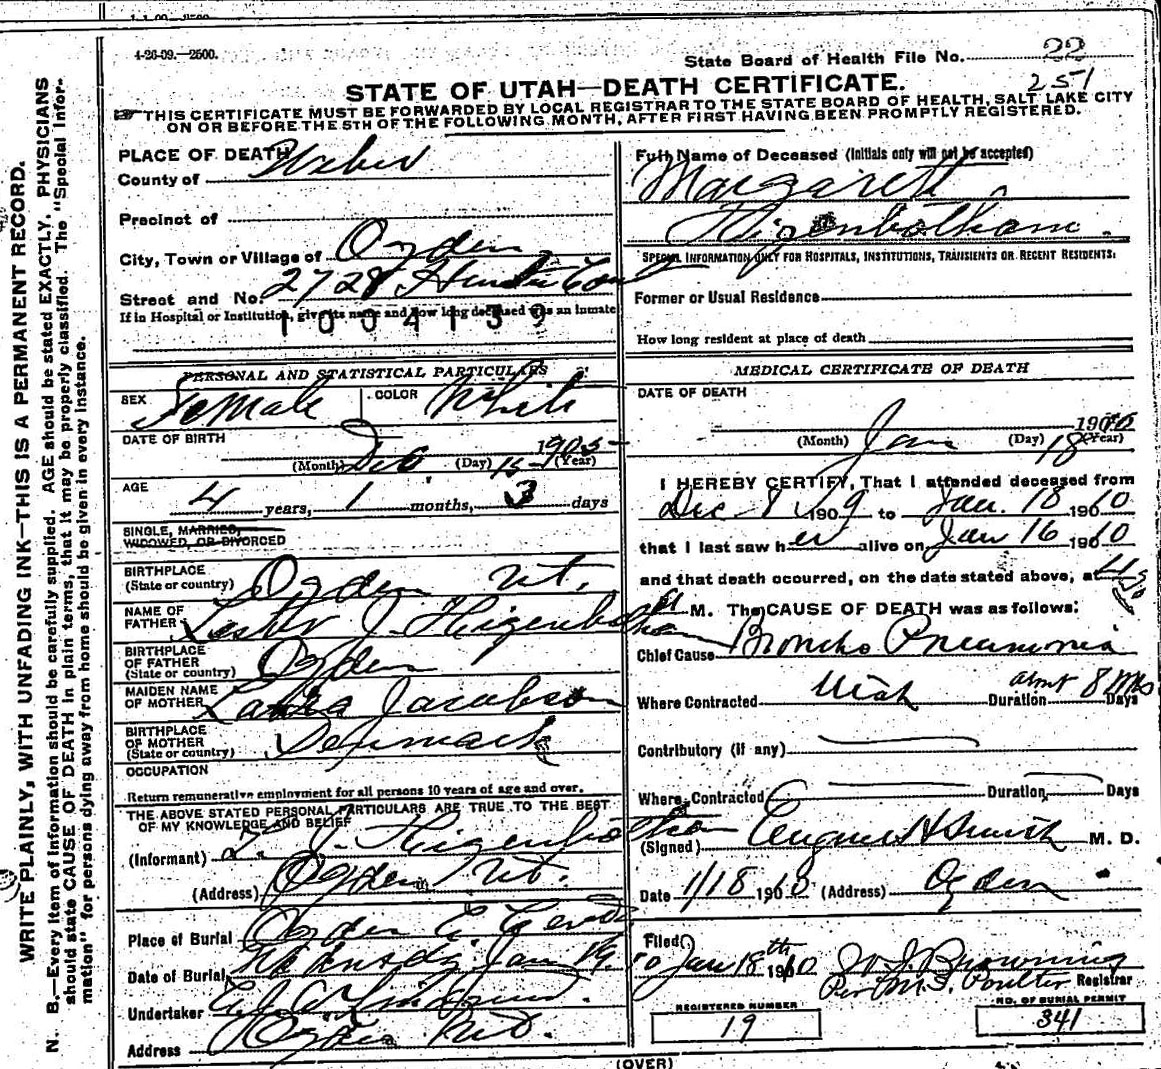 4-26-09.—2500.
State Board of Health File No. 22
251
STATE OF UTAH—DEATH CERTIFICATE.
THIS CERTIFICATE MUST BE FORWARDED BY LOCAL REGISTRAR TO THE STATE BOARD OF HEALTH, SALT LAKE CITY
ON OR BEFORE THE 5TH OF THE FOLLOWING MONTH, AFTER FIRST HAVING BEEN PROMPTLY REGISTERED.
WRITE PLAINLY, WITH UNFADING INK—THIS IS A PERMANENT RECORD.
N. B.—Every item of information should be carefully supplied. AGE should be stated EXACTLY. PHYSICIANS
should state CAUSE OF DEATH in plain terms, that it may be properly classified. The "Special Infor-
mation" for persons dying away from home should be given in every instance.
PLACE OF DEATH
County of Weber
Precinct of
City, Town or Village of Ogden
Street and No. 2728
If in Hospital or Institution, give its name and how long deceased was an inmate
1004139
PERSONAL AND STATISTICAL PARTICULARS
SEX Female COLOR White
DATE OF BIRTH
(Month) Dec (Day) 15 1905 (Year)
AGE
4 years, 1 months, 3 days
SINGLE, MARRIED,
WIDOWED, OR DIVORCED
BIRTHPLACE
(State or country) Ogden Ut.
NAME OF
FATHER Lester J. Higenbotham
BIRTHPLACE
OF FATHER
(State or country) Ogden
MAIDEN NAME
OF MOTHER Jacobson
BIRTHPLACE
OF MOTHER
(State or country) Denmark
OCCUPATION
Return remunerative employment for all persons 10 years of age and over.
THE ABOVE STATED PERSONAL PARTICULARS ARE TRUE TO THE BEST
OF MY KNOWLEDGE AND BELIEF
(Informant) L. J. Higenbotham
(Address) Ogden Ut.
Place of Burial Ogden
Date of Burial Jan 19. 10
Undertaker
Address Ogden Ut.
Full Name of Deceased (Initials only will not be accepted)
Margaret
Higenbotham.
SPECIAL INFORMATION ONLY FOR HOSPITALS, INSTITUTIONS, TRANSIENTS OR RECENT RESIDENTS:
Former or Usual Residence
How long resident at place of death
MEDICAL CERTIFICATE OF DEATH
DATE OF DEATH
(Month) Jan (Day) 18 1910 (Year)
I HEREBY CERTIFY, That I attended deceased from
Dec 8 1909 to Jan. 18 1910
that I last saw her alive on Jan 16 1910
and that death occurred, on the date stated above, at
M. The CAUSE OF DEATH was as follows:
Chief Cause Broncho Pneumonia
Where Contracted Utah Duration about 8 Days
Contributory (if any)
Where Contracted Duration Days
(Signed) M. D.
Date 1/18 1910 (Address) Ogden
Filed Jan 18th 1910 Browning
Per M. S. Poulter Registrar
REGISTERED NUMBER
19
NO. OF BURIAL PERMIT
341
(OVER)